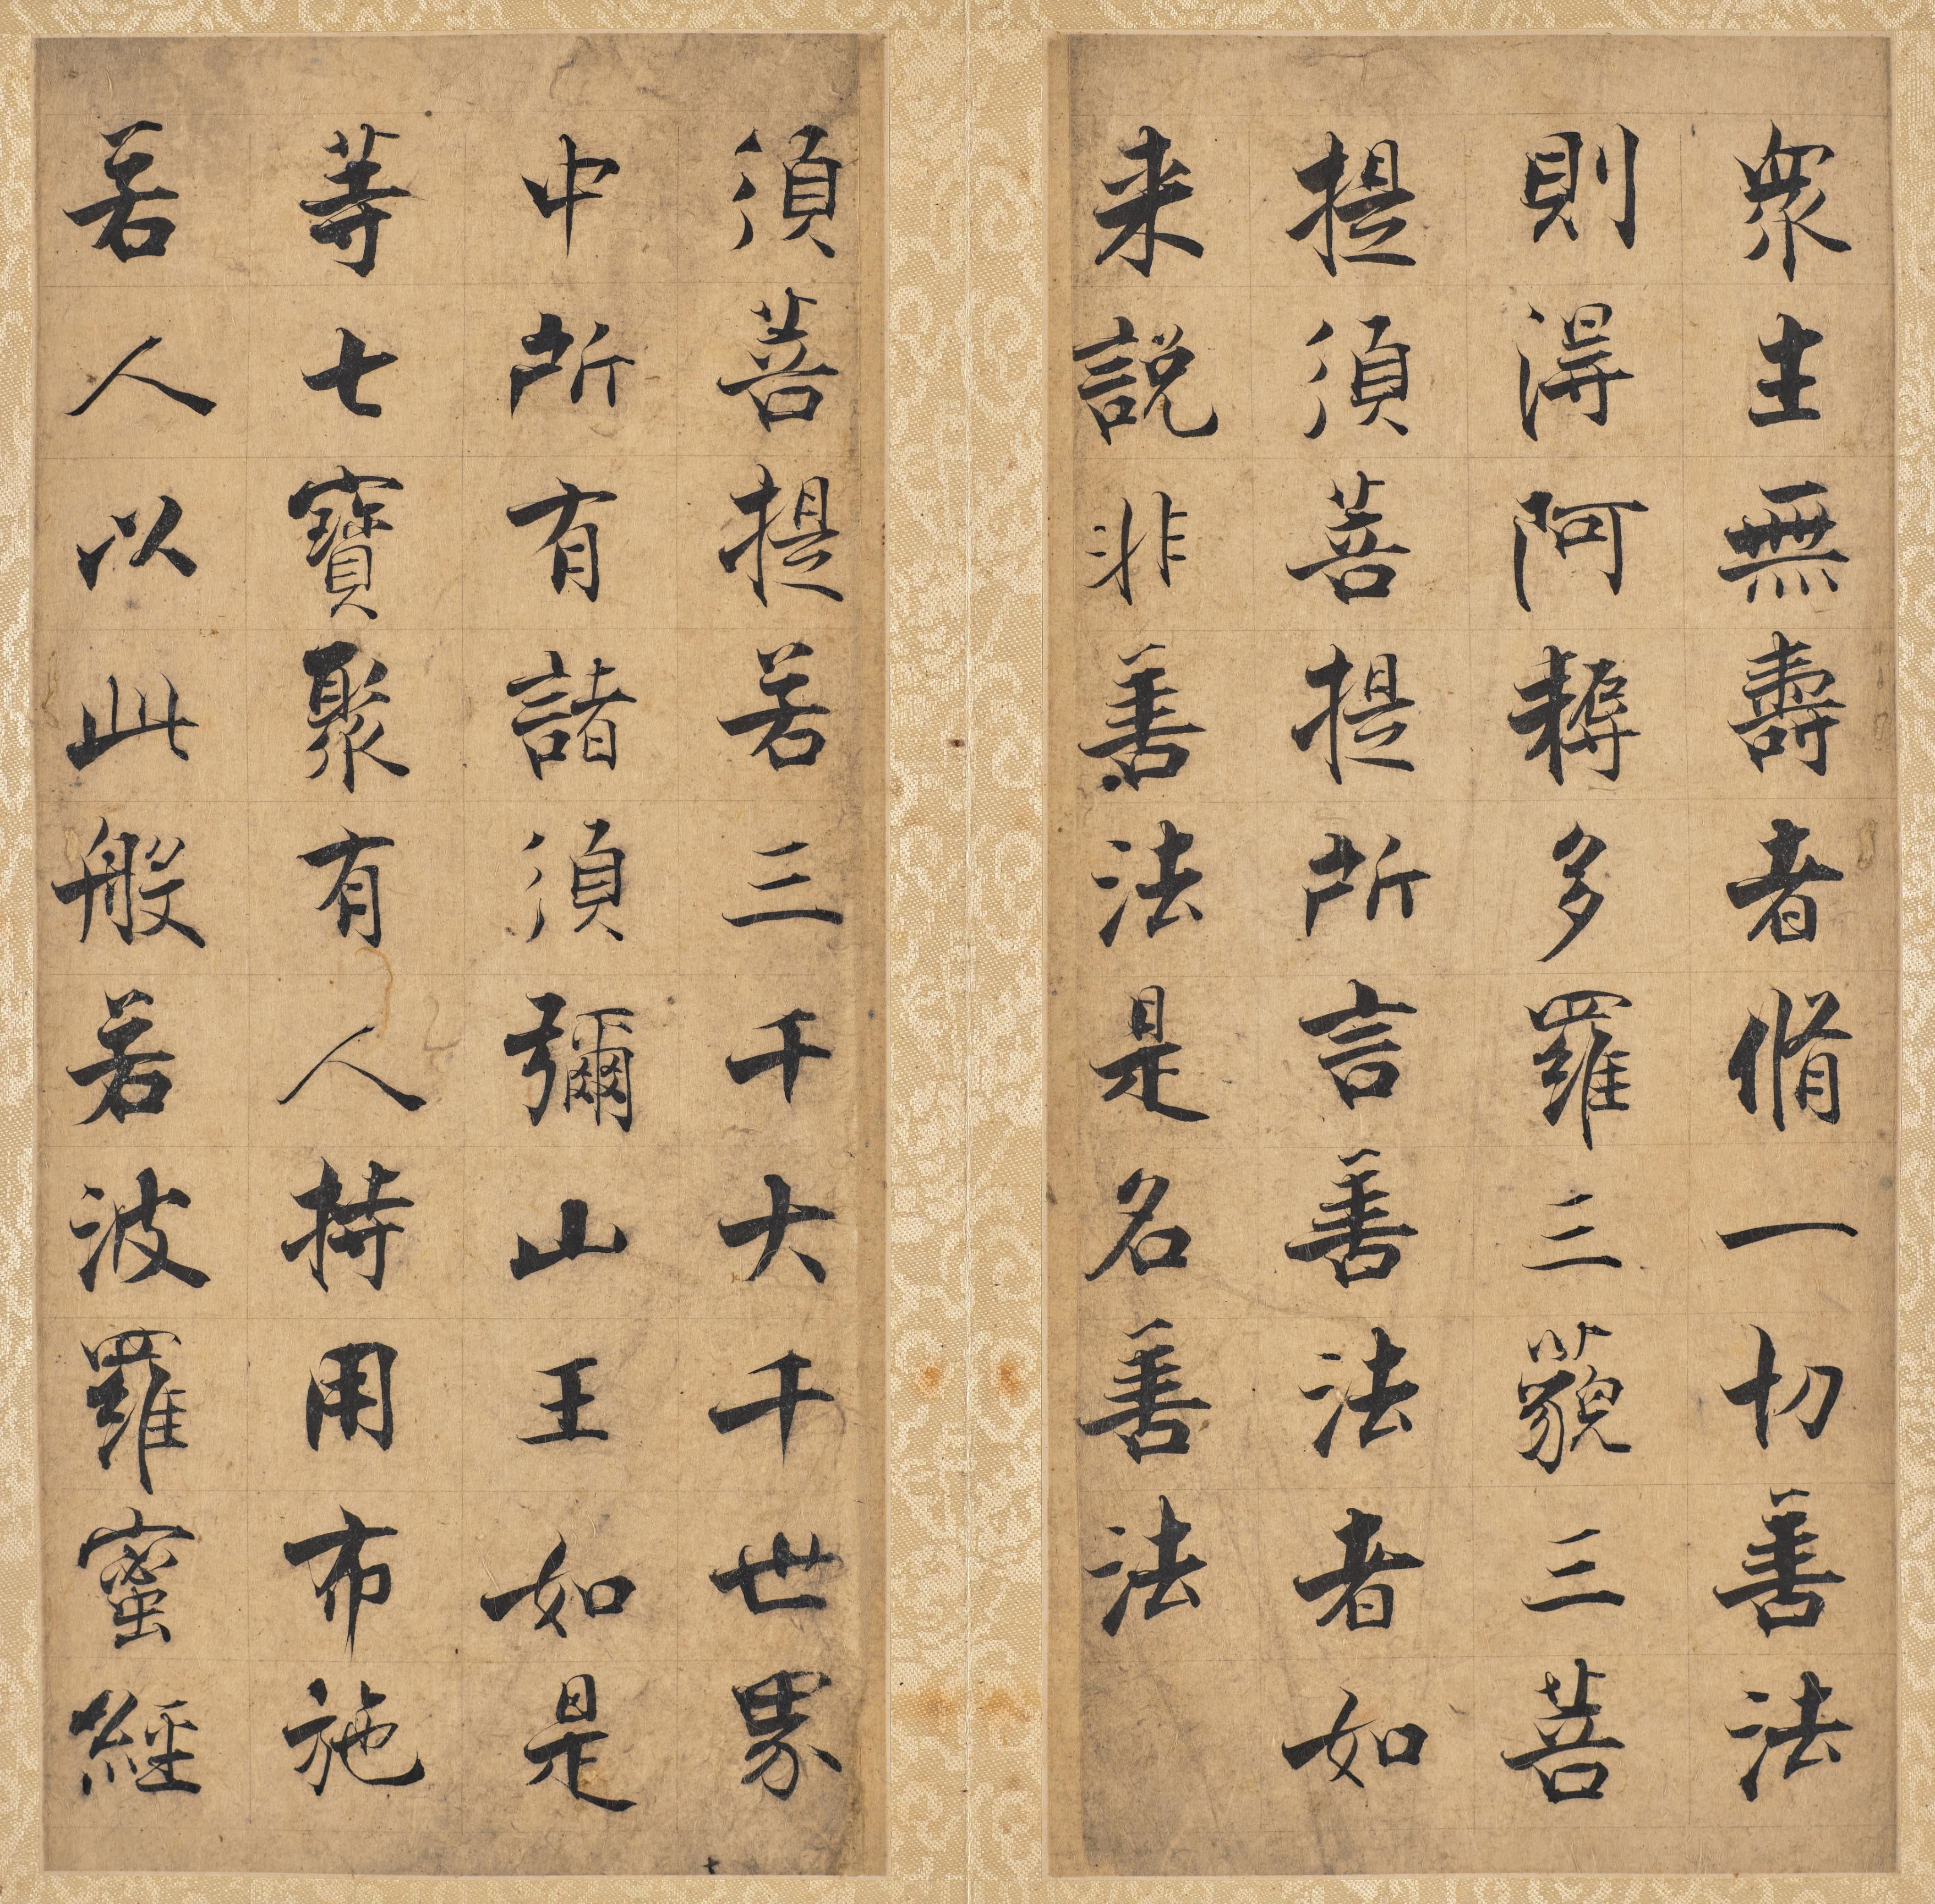 衆生無壽者脩一切善法
則淂阿耨多羅三藐三菩
提須菩提所言善法者如
来説非善法是名善法
須菩提若三千大千世界
中所有諸須彌山王如是
等七寶聚有人持用布施
若人以此般若波羅蜜經